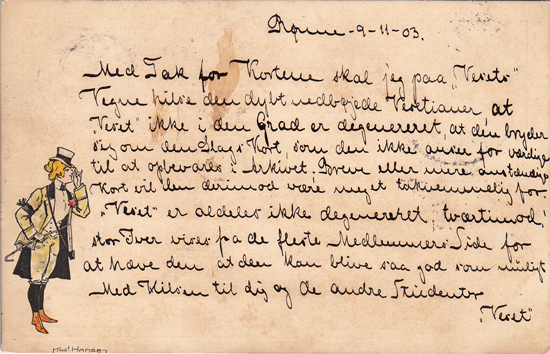 Rønne - 9 - 11 - 03.
Med Tak for Kortene skal jeg paa "Vesets"
Vegne hilse den dybt nedbøjede Vesetianer at
"Veset" ikke i den Grad er degenereret, at den bryder
sig om den Slags Kort, som den ikke anser for værdige
til at opbevares i Arkivet. Breve eller mere anstændige
Kort vil den derimod være meget taknemmelig for.
"Veset" er aldeles ikke degenereret, tværtimod,
stor Iver vises paa de fleste Medlemmers Side for
at hæve den, at den kan blive saa god som muligt
Med Hilsen til dig og de andre Studenter
"Veset"
Hansen